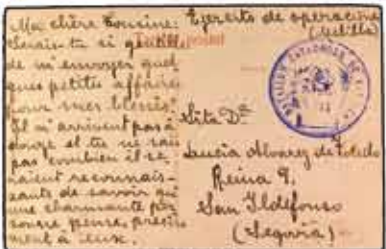 Ma chère Cousine:
Serais-tu si gentille
de m'envoyer quel
ques petites affaires
pour mes blessés
Il m'arrivent pas à
et tu ne sau
pas combien il se
raient reconnais-
sants de savoir qu'
une charmante per
sonne pense
ment à eux.
Ejercito de operaciones
(Melilla)
Srita Dª
Lucia Alvarez de Toledo
Reina 9.
San Ildefonso
(Segovia)